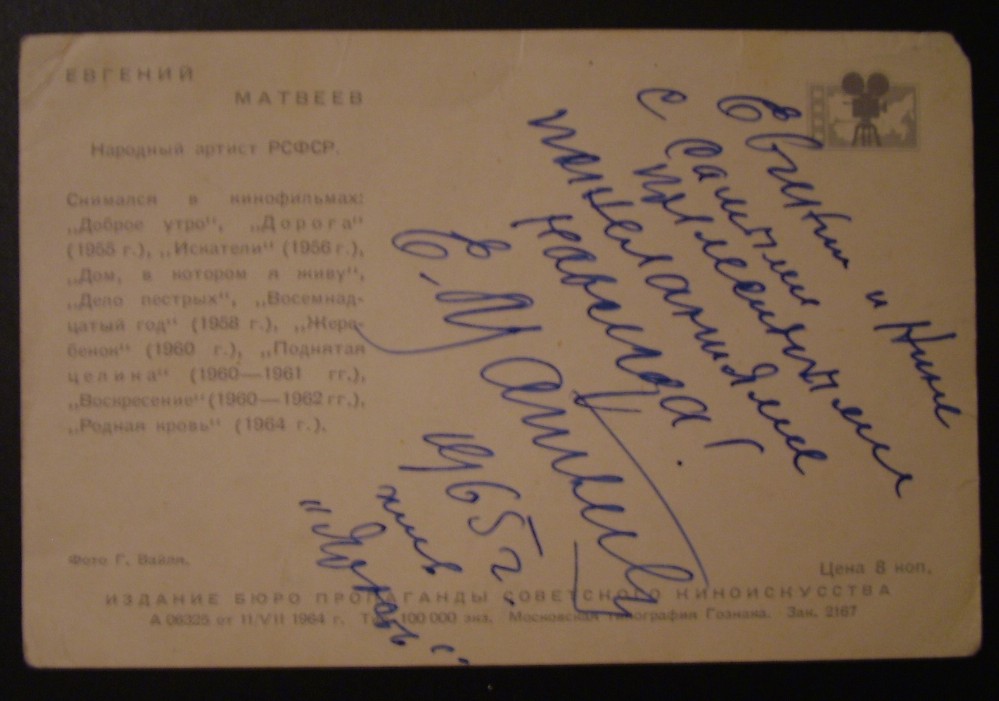 ЕВГЕНИЙ
МАТВЕЕВ
Народный артист РСФСР.
Снимался в кинофильмах:
„Доброе утро“, „Дорога“
(1955 г.), „Искатели“ (1956 г.),
„Дом, в котором я живу“,
„Дело пестрых“, „Восемнад-
цатый год“ (1958 г.), „Жере-
бенок“ (1960 г.), „Поднятая
целина“ (1960—1961 гг.),
„Воскресение“ (1960—1962 гг.),
„Родная кровь“ (1964 г.).
Фото Г. Вайля.
и Нине
с самыми
пожеланиями
навсегда!
Е. Матвеев
1965 г.
Цена 8 коп.
ИЗДАНИЕ БЮРО ПРОПАГАНДЫ СОВЕТСКОГО КИНОИСКУССТВА
А 06325 от 11/VII 1964 г. Тир. 100 000 экз. Московская типография Гознака. Зак. 2167